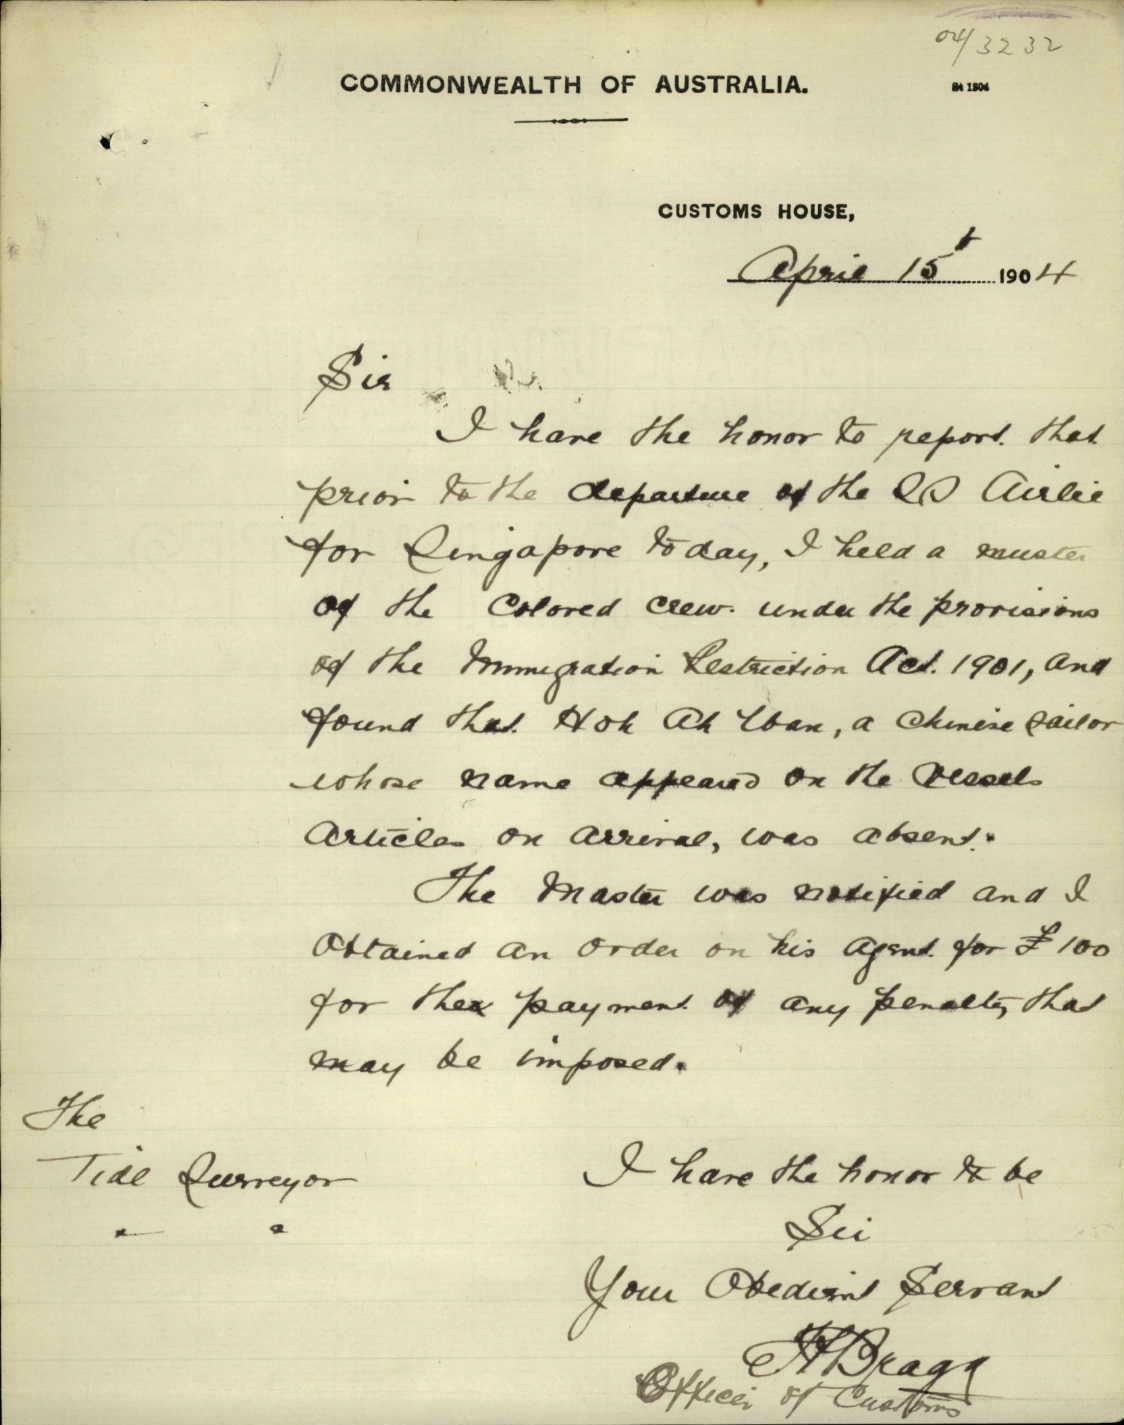 04/3232
COMMONWEALTH OF AUSTRALIA.
CUSTOMS HOUSE,
April 15t 1904
Sir
I have the honor to report that
prior to the departure of the SS Airlie
for Singapore today, I held a muster
of the Colored crew under the provisions
of the Immigration Restriction Act. 1901, and
found that Hok Ah, a Chinese Sailor
whose name appeared on the Vessels
Articles on arrival, was absent.
The Master was notified and I
obtained an order on his Agent for £100
for the payment of any penalty that
may be imposed.
The
Tide Surveyor
I have the honor to be
Sir
Your Obedient Servant
Bragg
Officer of Customs